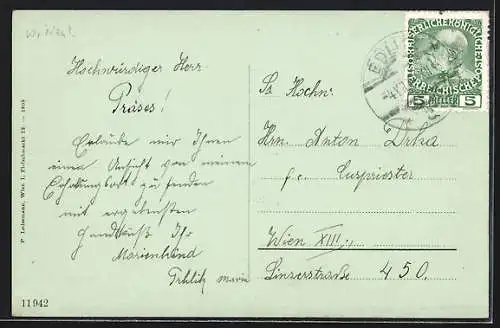 Hochwürdiger Herr
Präses!
Erlaube mir Ihnen
eine Ansicht von meinem
Erholungsort zu senden
mit ergebenstem
Handkuß Ihr
Marienkind
Marie
Sr. Hochw.
Hrn. Anton Drha
Curpriester
Wien XIII.
Linzerstraße 450.
KAISERLICHE KÖNIGLICHE
ÖSTERREICHISCHE
5 HELLER 5
P. Ledermann, Wien I. Fleischmarkt 12. — 1908
11942